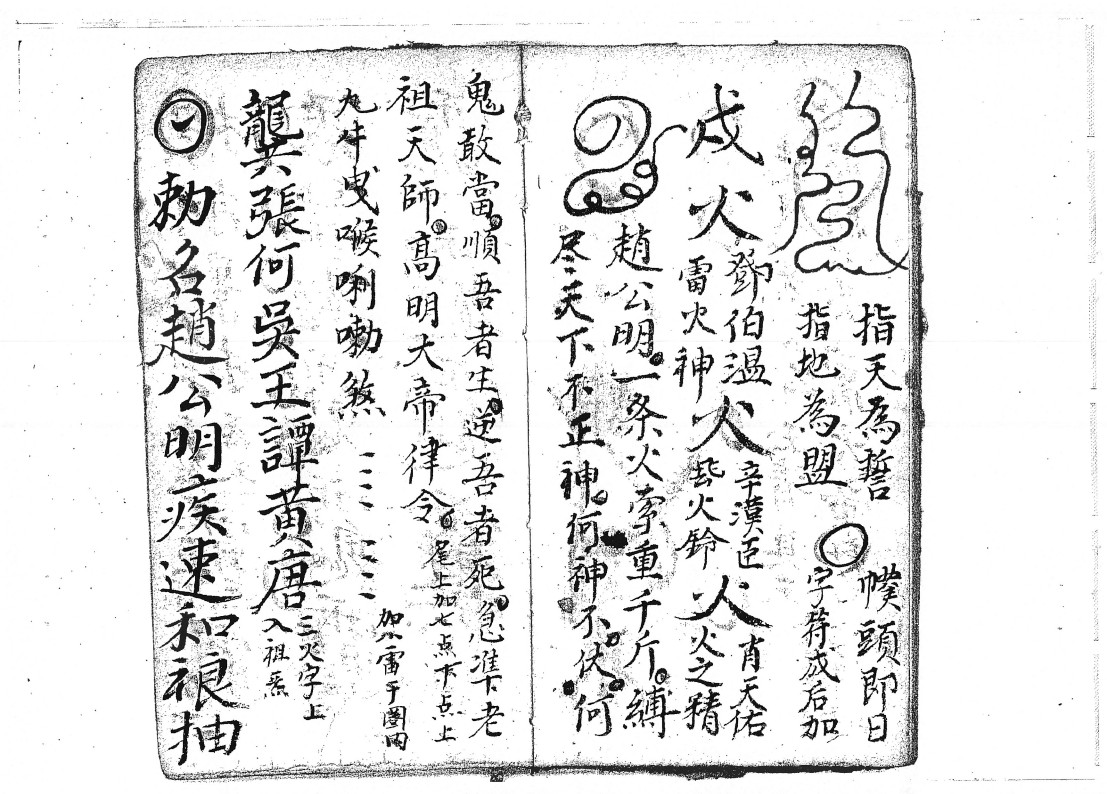 指天為誓 幞頭即日
指地為盟 字符成后加
戍火 鄧伯温 雷火神 火 辛漢臣 火鈴 火 肖天佑 火之精
趙公明。一条火索重千斤。縛
尽天下不正神。何神不伏。何
鬼敢當。順吾者生。逆吾者死。急準下老
祖天師。高明大帝律令。尾上加七点下点上
九牛曳喉唎嘞煞 加雷于圈內
龔張何吳王譚黃唐 三火字上入祖炁
勅名趙公明疾速和娘抽